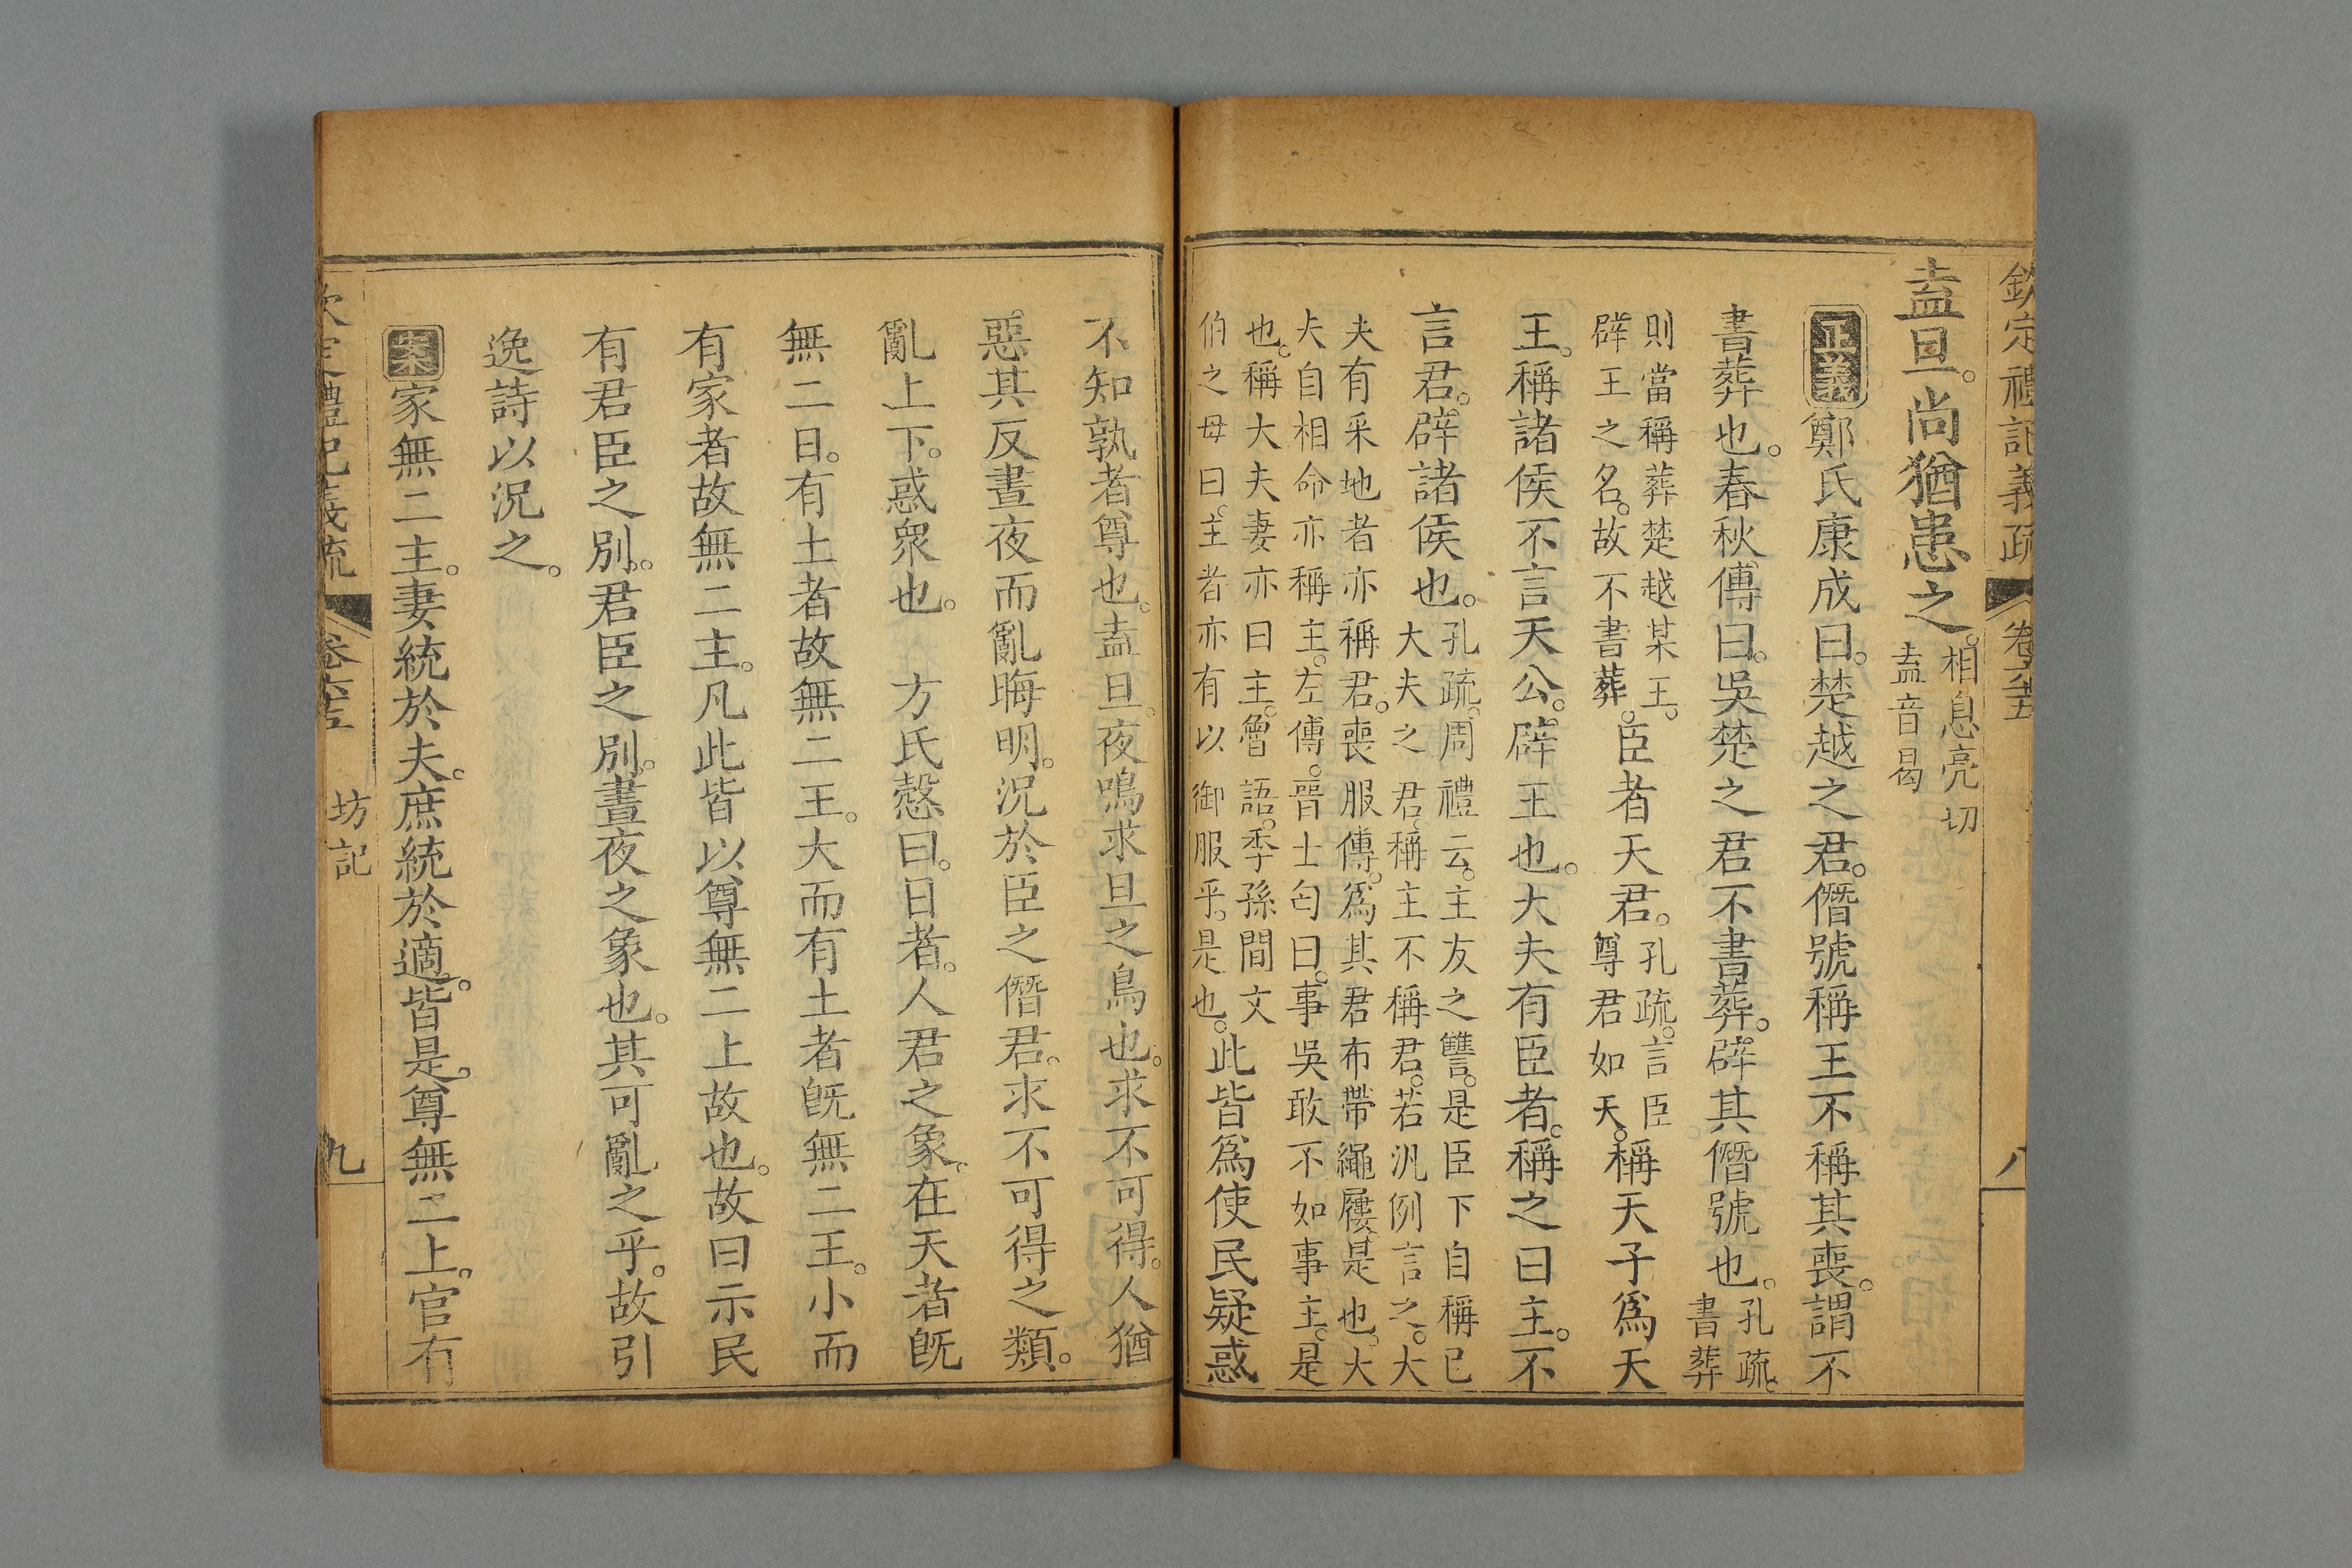 欽定禮記義疏 卷六十五 八
盇旦。尚猶患之。相息亮切盇音曷
正義鄭氏康成曰。楚越之君。僭號稱王不稱其喪。謂不
書葬也。春秋傳曰。吳楚之君不書葬。辟其僭號也。孔疏。書葬
則當稱葬楚越某王。辟王之名。故不書葬。臣者天君。孔疏。言臣尊君如天。稱天子爲天
王。稱諸侯不言天公。辟王也。大夫有臣者。稱之曰主。不
言君。辟諸侯也。孔疏。周禮云。主友之讐。是臣下自稱已大夫之君。稱主不稱君。若汎例言之。大
夫有采地者亦稱君。喪服傳。爲其君布帶繩屨。是也。大夫自相命亦稱主。左傳。晉士匄曰。事吳敢不如事主。是
也。稱大夫妻亦曰主。魯語。季孫間文伯之母曰。主者亦有以御服乎。是也。此皆爲使民疑惑
不知孰者尊也。盇旦。夜鳴求旦之鳥也。求不可得。人猶
惡其反晝夜而亂晦明。況於臣之僭君。求不可得之類。
亂上下。惑衆也。 方氏慤曰。日者。人君之象。在天者旣
無二日。有土者故無二王。大而有土者旣無二王。小而
有家者故無二主。凡此皆以尊無二上故也。故曰示民
有君臣之別。君臣之別。晝夜之象也。其可亂之乎。故引
逸詩以況之。
案家無二主。妻統於夫。庶統於適。皆是。尊無二上。官有
欽定禮記義疏 卷六十五 坊記 九